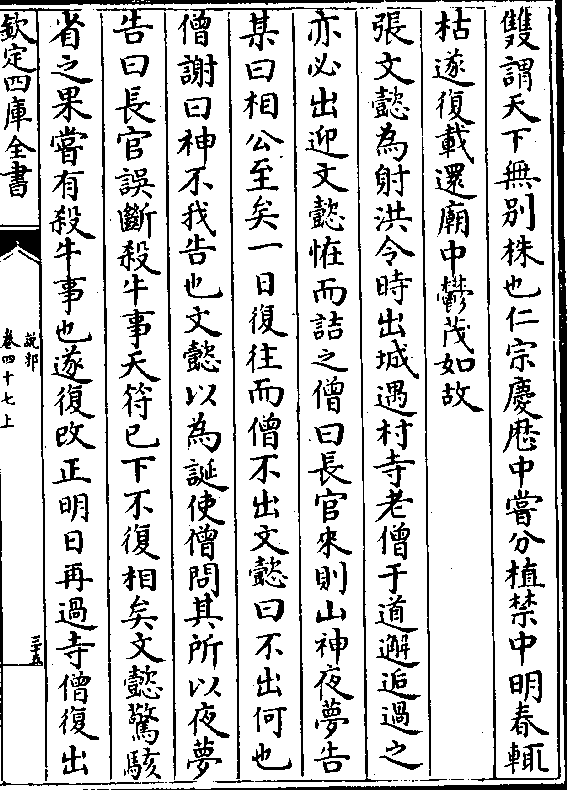 雙謂天下無别株也仁宗慶厯中嘗分植禁中明春輒
枯遂復載還廟中鬱茂如故
張文懿為射洪令時出城遇村寺老僧于道邂逅過之
亦必出迎文懿恠而詰之僧曰長官來則山神夜夢告
某曰相公至矣一日復往而僧不出文懿曰不出何也
僧謝曰神不我告也文懿以為誕使僧問其所以夜夢
告曰長官誤斷殺牛事天符已下不復相矣文懿驚駭
省之果嘗有殺牛事也遂復改正明日再過寺僧復出
欽定四庫全書
説郛
卷四十七上
三十五